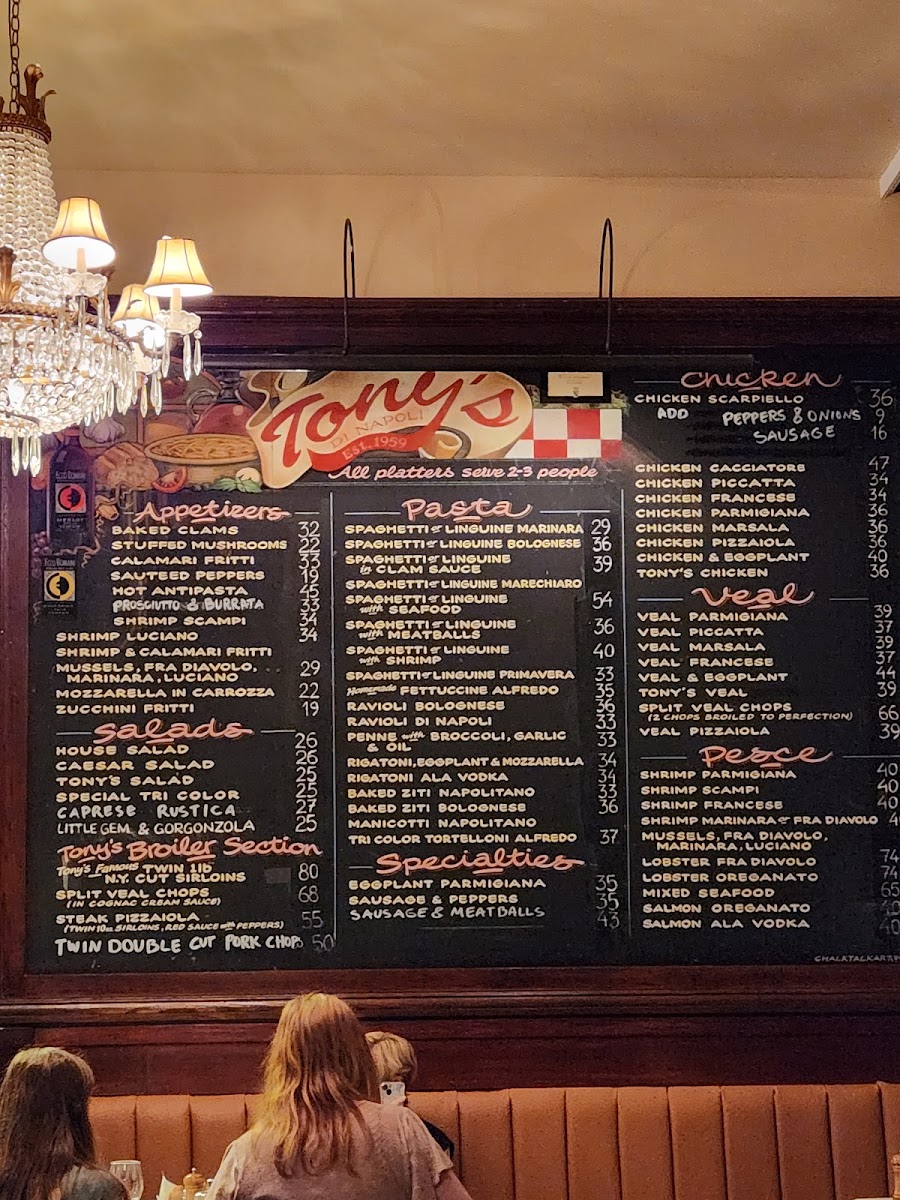 Tony's
DI NAPOLI
Est. 1959
All platters serve 2-3 people
Appetizers
BAKED CLAMS 32
STUFFED MUSHROOMS 22
CALAMARI FRITTI 33
SAUTEED PEPPERS 19
HOT ANTIPASTA 45
PROSCIUTTO & BURRATA 33
SHRIMP SCAMPI 34
SHRIMP LUCIANO 34
SHRIMP & CALAMARI FRITTI
MUSSELS, FRA DIAVOLO, 29
MARINARA, LUCIANO
MOZZARELLA IN CARROZZA 22
ZUCCHINI FRITTI 19
Salads
HOUSE SALAD 26
CAESAR SALAD 26
TONY'S SALAD 25
SPECIAL TRI COLOR 25
CAPRESE RUSTICA 27
LITTLE GEM & GORGONZOLA 25
Tony's Broiler Section
Tony's Famous TWIN 1lb
N.Y. CUT SIRLOINS 80
SPLIT VEAL CHOPS 68
(IN COGNAC CREAM SAUCE)
STEAK PIZZAIOLA 55
(TWIN 10oz SIRLOINS, RED SAUCE with PEPPERS)
TWIN DOUBLE CUT PORK CHOPS 50
Pasta
SPAGHETTI or LINGUINE MARINARA 29
SPAGHETTI or LINGUINE BOLOGNESE 36
SPAGHETTI or LINGUINE 39
& CLAM SAUCE
SPAGHETTI or LINGUINE MARECHIARO
SPAGHETTI or LINGUINE 54
with SEAFOOD
SPAGHETTI or LINGUINE 36
with MEATBALLS
SPAGHETTI or LINGUINE 40
with SHRIMP
SPAGHETTI or LINGUINE PRIMAVERA 33
Homemade FETTUCCINE ALFREDO 35
RAVIOLI BOLOGNESE 36
RAVIOLI DI NAPOLI 33
PENNE with BROCCOLI, GARLIC 33
& OIL
RIGATONI, EGGPLANT & MOZZARELLA 34
RIGATONI ALA VODKA 34
BAKED ZITI NAPOLITANO 33
BAKED ZITI BOLOGNESE 36
MANICOTTI NAPOLITANO
TRI COLOR TORTELLONI ALFREDO 37
Specialties
EGGPLANT PARMIGIANA 35
SAUSAGE & PEPPERS 35
SAUSAGE & MEATBALLS 43
Chicken
CHICKEN SCARPIELLO 36
ADD PEPPERS & ONIONS 9
SAUSAGE 16
CHICKEN CACCIATORE 47
CHICKEN PICCATTA 34
CHICKEN FRANCESE 34
CHICKEN PARMIGIANA 36
CHICKEN MARSALA 36
CHICKEN PIZZAIOLA 36
CHICKEN & EGGPLANT 40
TONY'S CHICKEN 36
Veal
VEAL PARMIGIANA 39
VEAL PICCATTA 37
VEAL MARSALA 39
VEAL FRANCESE 37
VEAL & EGGPLANT 44
TONY'S VEAL 39
SPLIT VEAL CHOPS 66
(2 CHOPS BROILED TO PERFECTION)
VEAL PIZZAIOLA 39
Pesce
SHRIMP PARMIGIANA 40
SHRIMP SCAMPI 40
SHRIMP FRANCESE 40
SHRIMP MARINARA or FRA DIAVOLO
MUSSELS, FRA DIAVOLO,
MARINARA, LUCIANO
LOBSTER FRA DIAVOLO 74
LOBSTER OREGANATO 74
MIXED SEAFOOD 65
SALMON OREGANATO 40
SALMON ALA VODKA 40